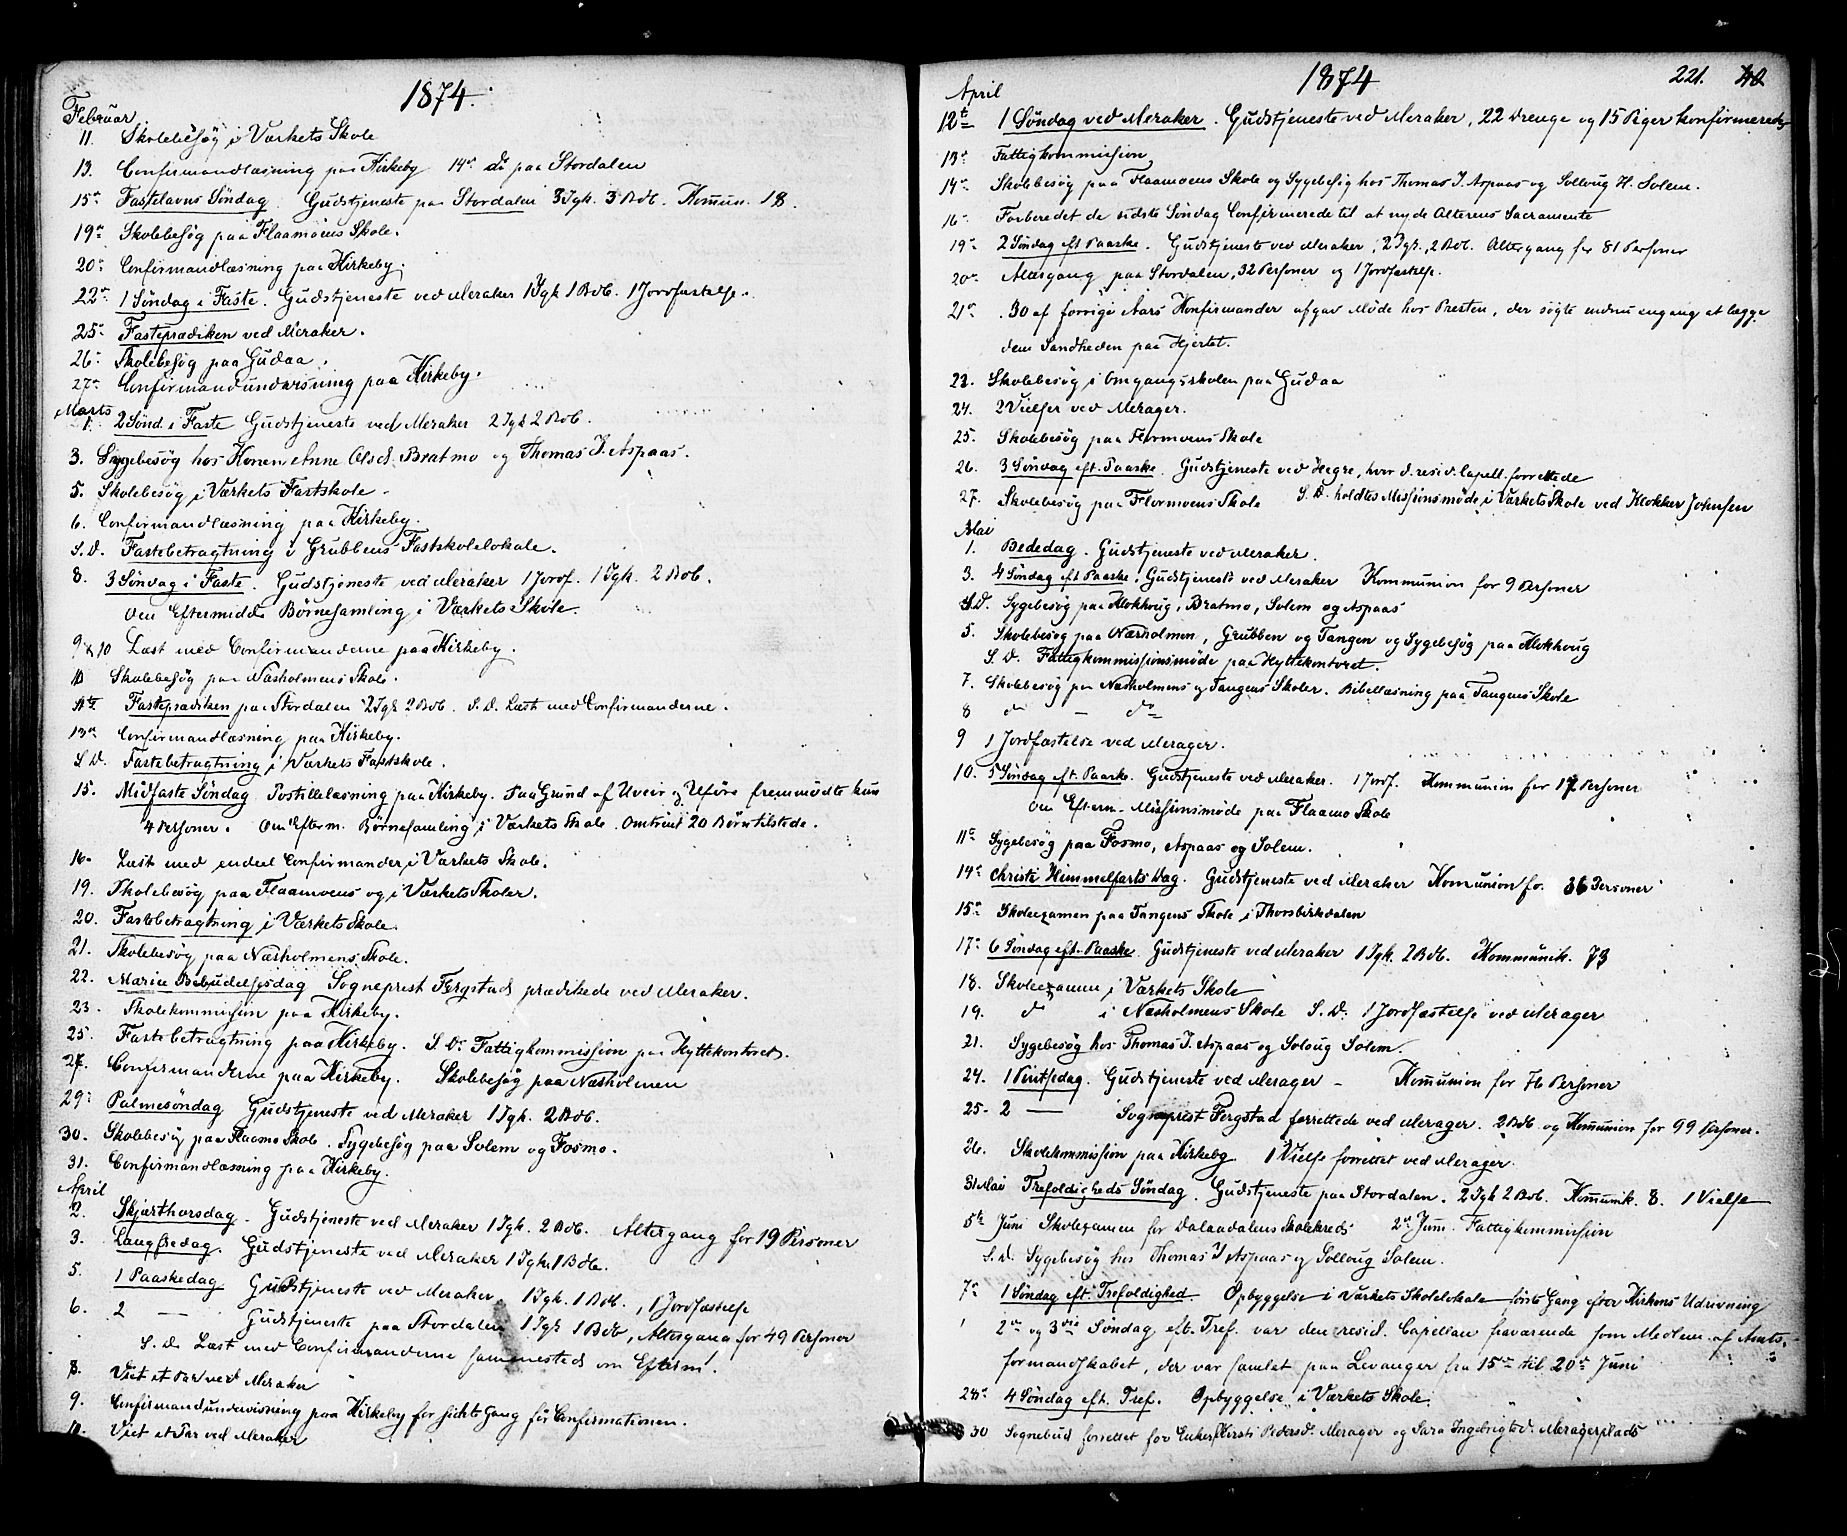 1874.
Februar
11. Skolebesøg i Værkets Skole
13. Confirmandlæsning paa Kirkeby 14de do paa Stordalen
15de Fastelavns Søndag. Gudstjeneste paa Stordalen 3 Igk. 3 Bdb. Kommun. 18.
19de Skolebesøg paa Flaamoens Skole.
20de Confirmandlæsning paa Kirkeby.
22de 1 Søndag i Faste. Gudstjeneste ved Meraker 1 Igk 1 Bdb. 1 Jordfæstelse.
25de Fasteprædiken ved Meraker.
26de Skolebesøg paa Gudaa.
27de Confirmandundervisning paa Kirkeby.
Marts
1. 2 Sønd. i Faste Gudstjeneste ved Meraker 2 Igk 2 Bdb.
3. Sygebesøg hos Konen Anne Olsd. Bratmo og Thomas J. Aspaas.
5. Skolebesøg i Værkets Fastskole.
6. Confirmandlæsning paa Kirkeby.
S. D. Fastebetragtning i Grubbens Fastskolelokale.
8. 3 Søndag i Faste. Gudstjeneste ved Meraker 1 Jordf. 1 Igk. 2 Bdb.
Om Eftermidd. Børnesamling i Værkets Skole.
9 & 10 Læst med Confirmanderne paa Kirkeby.
10 Skolebesøg paa Næsholmens Skole.
11te Fasteprædiken paa Stordalen 2 Igk 2 Bdb. S. D. Læst med Confirmanderne.
13de Confirmandlæsning paa Kirkeby.
S D. Fastebetragtning i Værkets Fastskole.
15. Midfaste Søndag Postillelæsning paa Kirkeby. Paa Grund af Uveir og Uføre fremmødte kun
4 Personer. Om Efterm. Børnesamling i Værkets Skole. Omtrent 20 Børn tilstede.
16. Læst med endeel Confirmander i Værkets Skole.
19. Skolebesøg paa Flaamoens og i Værkets Skoler.
20. Fastebetragtning i Værkets Skole.
21. Skolebesøg paa Næsholmens Skole.
22. Mariæ Bebudelsesdag Sogneprest Fergstad prædikede ved Meraker.
23. Skolekommission paa Kirkeby.
25. Fastebetragtning paa Kirkeby. S. D. Fattigkommission paa Hyttekontoret.
27. Confirmanderne paa Kirkeby. Skolebesøg paa Næsholmen
29. Palmesøndag Gudstjeneste ved Meraker 1 Igk. 2 Bdb.
30. Skolebesøg paa Flaamo Skole. Sygebesøg paa Solem og Fosmo.
31. Confirmandlæsning paa Kirkeby.
April
2. Skjærthorsdag. Gudstjeneste ved Meraker 1 Igk. 2 Bdb. Altergang for 19 Personer
3. Langfredag. Gudstjeneste ved Meraker 1 Igk. 1 Bdb.
5. 1 Paaskedag Gudstjeneste ved Meraker 1 Igk. 1 Bdb., 1 Jordfæstelse
6. 2 — Gudstjeneste paa Stordalen 1 Igk 1 Bdb, Altergang for 49 Personer
S. D. Læst med Confirmanderne sammesteds om Efterm.
8. Viet et Par ved Meraker
9. Confirmandundervisning paa Kirkeby for sidste Gang før Confirmationen.
10. Viet et Par ved Meraker
1874 221.
April
12te 1 Søndag ved Meraker. Gudstjeneste ved Meraker, 22 Drenge og 15 Piger konfirmeredes
13de Fattigkommission
14de Skolebesøg paa Flaamoens Skole og Sygebesøg hos Thomas J. Aspaas og Sollaug H. Solem.
16. Forberedet de sidste Søndag Confirmerede til at nyde Alterens Sacramente
19de 2 Søndag eft Paaske. Gudstjeneste ved Meraker, 2 Igk., 2 Bdb. Altergang for 81 Personer
20de Altergang paa Stordalen, 32 Personer og 1 Jordfæstelse.
21de 30 af forrige Aars Konfirmander afgav Møde hos Presten, der søgte endnu engang at lægge
dem Sandheden paa Hjertet.
22. Skolebesøg i Omgangsskolen paa Gudaa
24. 2 Vielser ved Merager.
25. Skolebesøg paa Flormoens Skole
26. 3 Søndag eft. Paaske. Gudstjeneste ved Hegre, hvor d. resid. Capell. forrettede
27. Skolebesøg paa Flormoens Skole S. D. holdtes Missionsmøde i Værkets Skole ved Klokker Johnsen
Mai
1. Bededag. Gudstjeneste ved Meraker.
3. 4 Søndag eft Paaske. Gudstjeneste ved Meraker Kommunion for 9 Personer
S. D. Sygebesøg paa Klokhaug, Bratmo, Solem og Aspaas
5. Skolebesøg paa Næsholmen, Grubben og Tangen og Sygebesøg paa Klokhaug
S. D. Fattigkommissionsmøde paa Hyttekontoret.
7. Skolebesøg paa Næsholmens og Tangens Skoler. Bibellæsning paa Tangens Skole
8 do — do
9 1 Jordfæstelse ved Merager.
10. 5 Søndag eft. Paaske. Gudstjeneste ved Meraker. 1 Jordf. Kommunion for 17 Personer
Om Efterm. Missionsmøde paa Flaamo Skole
11te Sygebesøg paa Fosmo, Aspaas og Solem.
14de Christi Himmelfarts Dag. Gudstjeneste ved Meraker Kommunion for 36 Personer
15de Skoleexamen paa Tangens Skole i Thorsbirkdalen
17de 6 Søndag eft. Paaske Gudstjeneste ved Meraker 1 Igk. 2 Bdb. Kommunik. 73
18. Skoleexamen i Værkets Skole
19. do i Næsholmens Skole S. D. 1 Jordfæstelse ved Merager
21. Sygebesøg hos Thomas J. Aspaas og Solaug Solem.
24. 1 Pintsedag. Gudstjeneste ved Merager — Kommunion for 76 Personer
25. 2 — Sogneprest Fergstad forrettede ved Merager. 2 Bdb og Kommunion for 99 Personer.
26. Skolekommission paa Kirkeby 1 Vielse forrettet ved Merager.
31 Mai Trefoldigheds Søndag. Gudstjeneste paa Stordalen. 2 Igk 2 Bdb. Kommunik. 8. 1 Vielse
5te Juni Skoleexamen for Dalaadalens Skolekreds 2de Juni. Fattigkommission
S. D. Sygebesøg hos Thomas J Aspaas og Sollaug Solem.
7de 1 Søndag eft. Trefoldighed Opbyggelse i Værkets Skolelokale første Gang efter Kirkens Udrivning
2den og 3die Søndag eft. Tref. var den resid. Capellan fraværende som Medlem af Amts-
formandskabet, der var samlet paa Levanger fra 15de til 20de Juni
28de 4 Søndag eft. Tref. Opbyggelse i Værkets Skole.
30 Sognebud forrettet for Enken Kirsti Pedersd. Merager og Sara Ingebrigtsd. Meragerplads